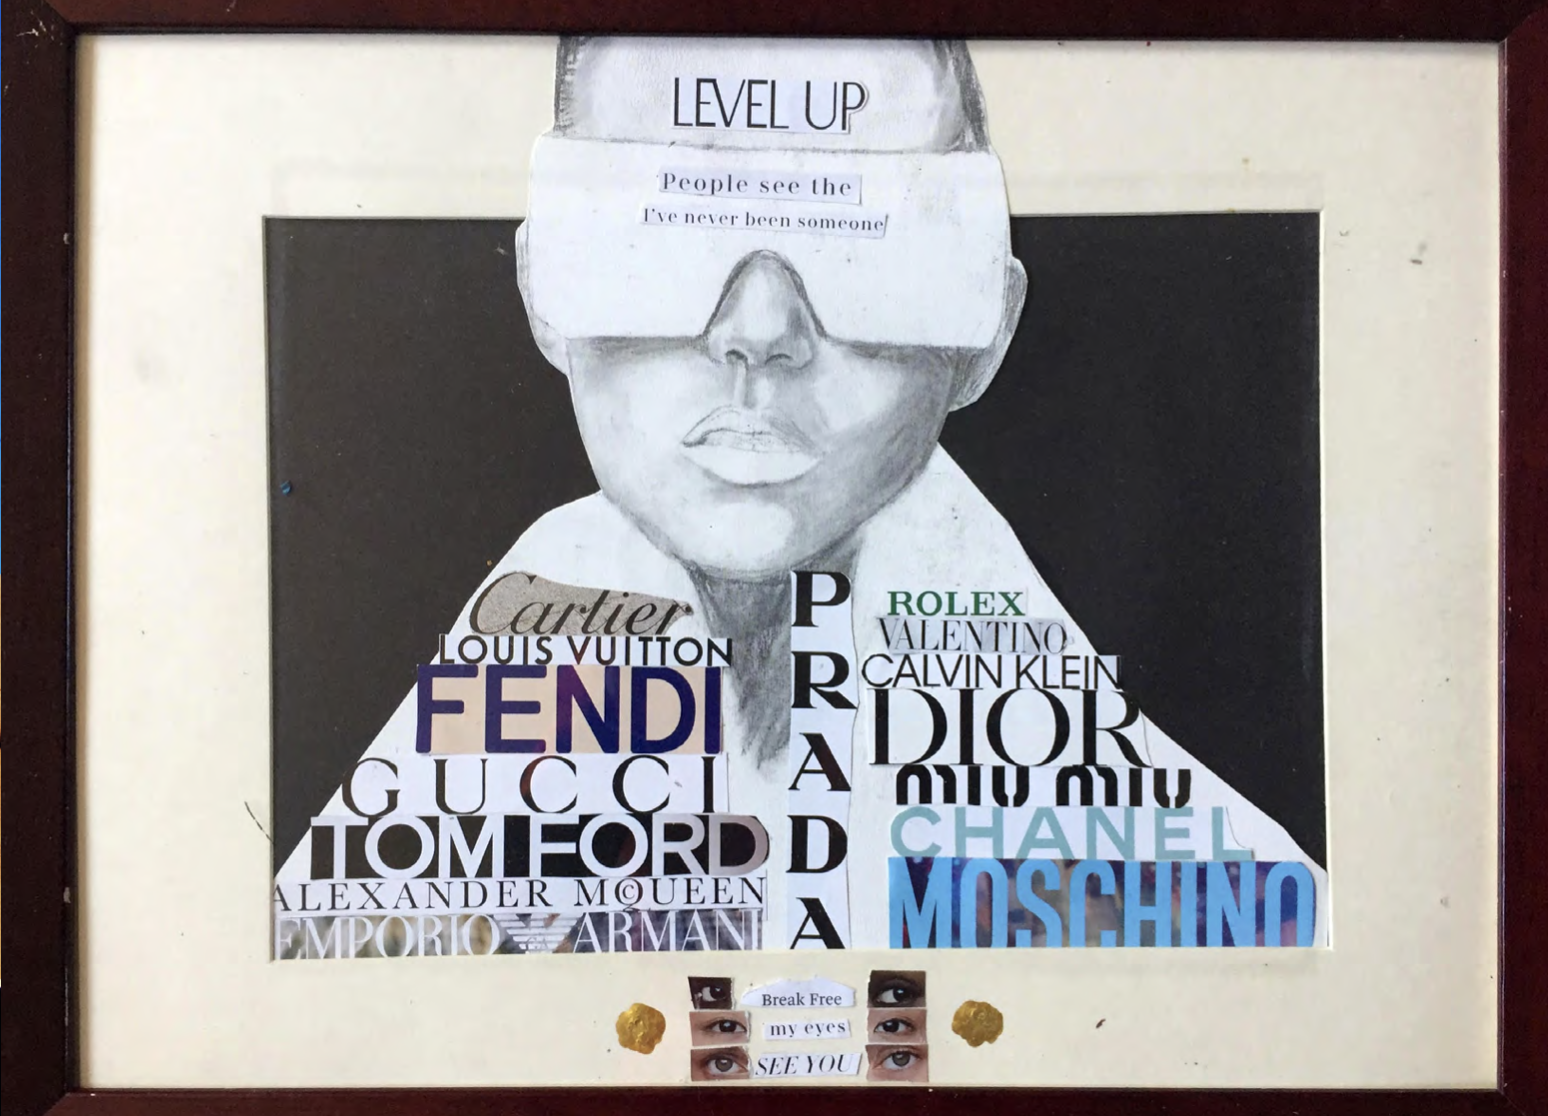 LEVEL UP
People see the
I've never been someone
Cartier
LOUIS VUITTON
FENDI
GUCCI
TOM FORD
ALEXANDER McQUEEN
EMPORIO ARMANI
PRADA
ROLEX
VALENTINO
CALVIN KLEIN
DIOR
miu miu
CHANEL
MOSCHINO
Break Free
my eyes
SEE YOU